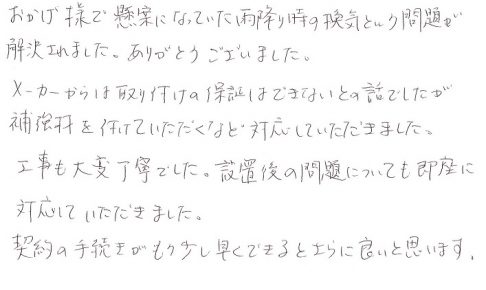 おかげ様で懸案になっていた雨降り時の換気という問題が
解決されました。ありがとうございました。
メーカーからは取り付けの保証はできないとの話でしたが
補強材を付けていただくなど対応していただきました。
工事も大変丁寧でした。設置後の問題についても即座に
対応していただきました。
契約の手続きがもう少し早くできるとさらに良いと思います。